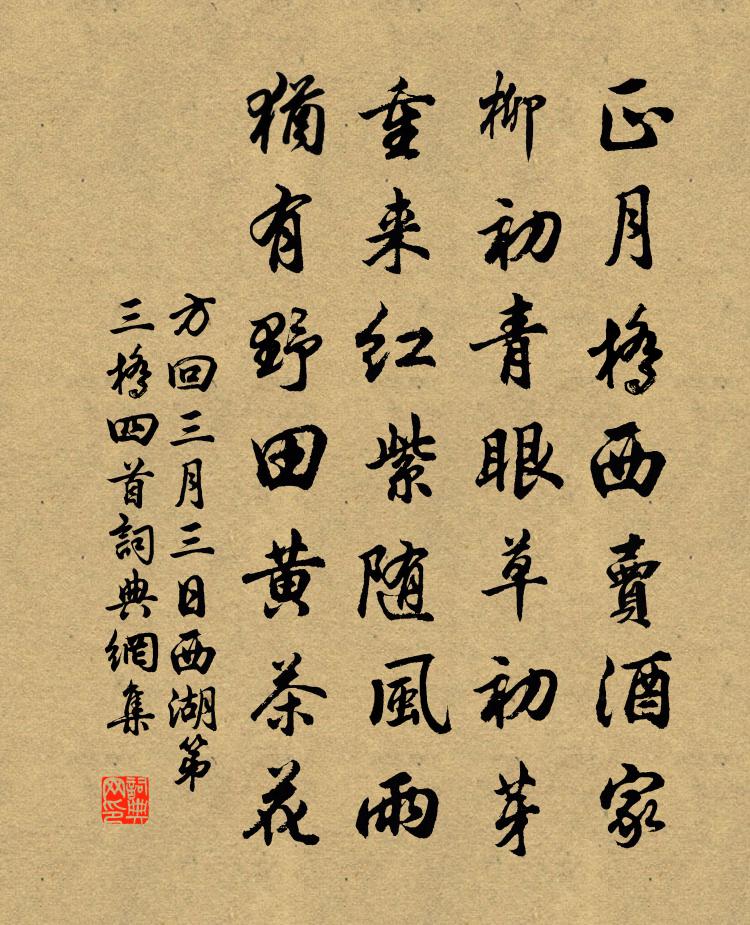 正月橋西賣酒家
柳初青眼草初芽
重来红紫随風雨
猶有野田黄茶花
方回三月三日西湖第
三橋四首詞典網集
詞典
网印